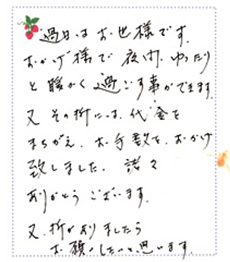 過日はお世話様です。
おかげ様で夜間、ゆったり
と暖かく過ごす事ができます。
又その折には、代金を
まちがえ、お手数を、おかけ
致しました。諸々
ありがとうございます。
又、折がありましたら
お願いしたいと思います。